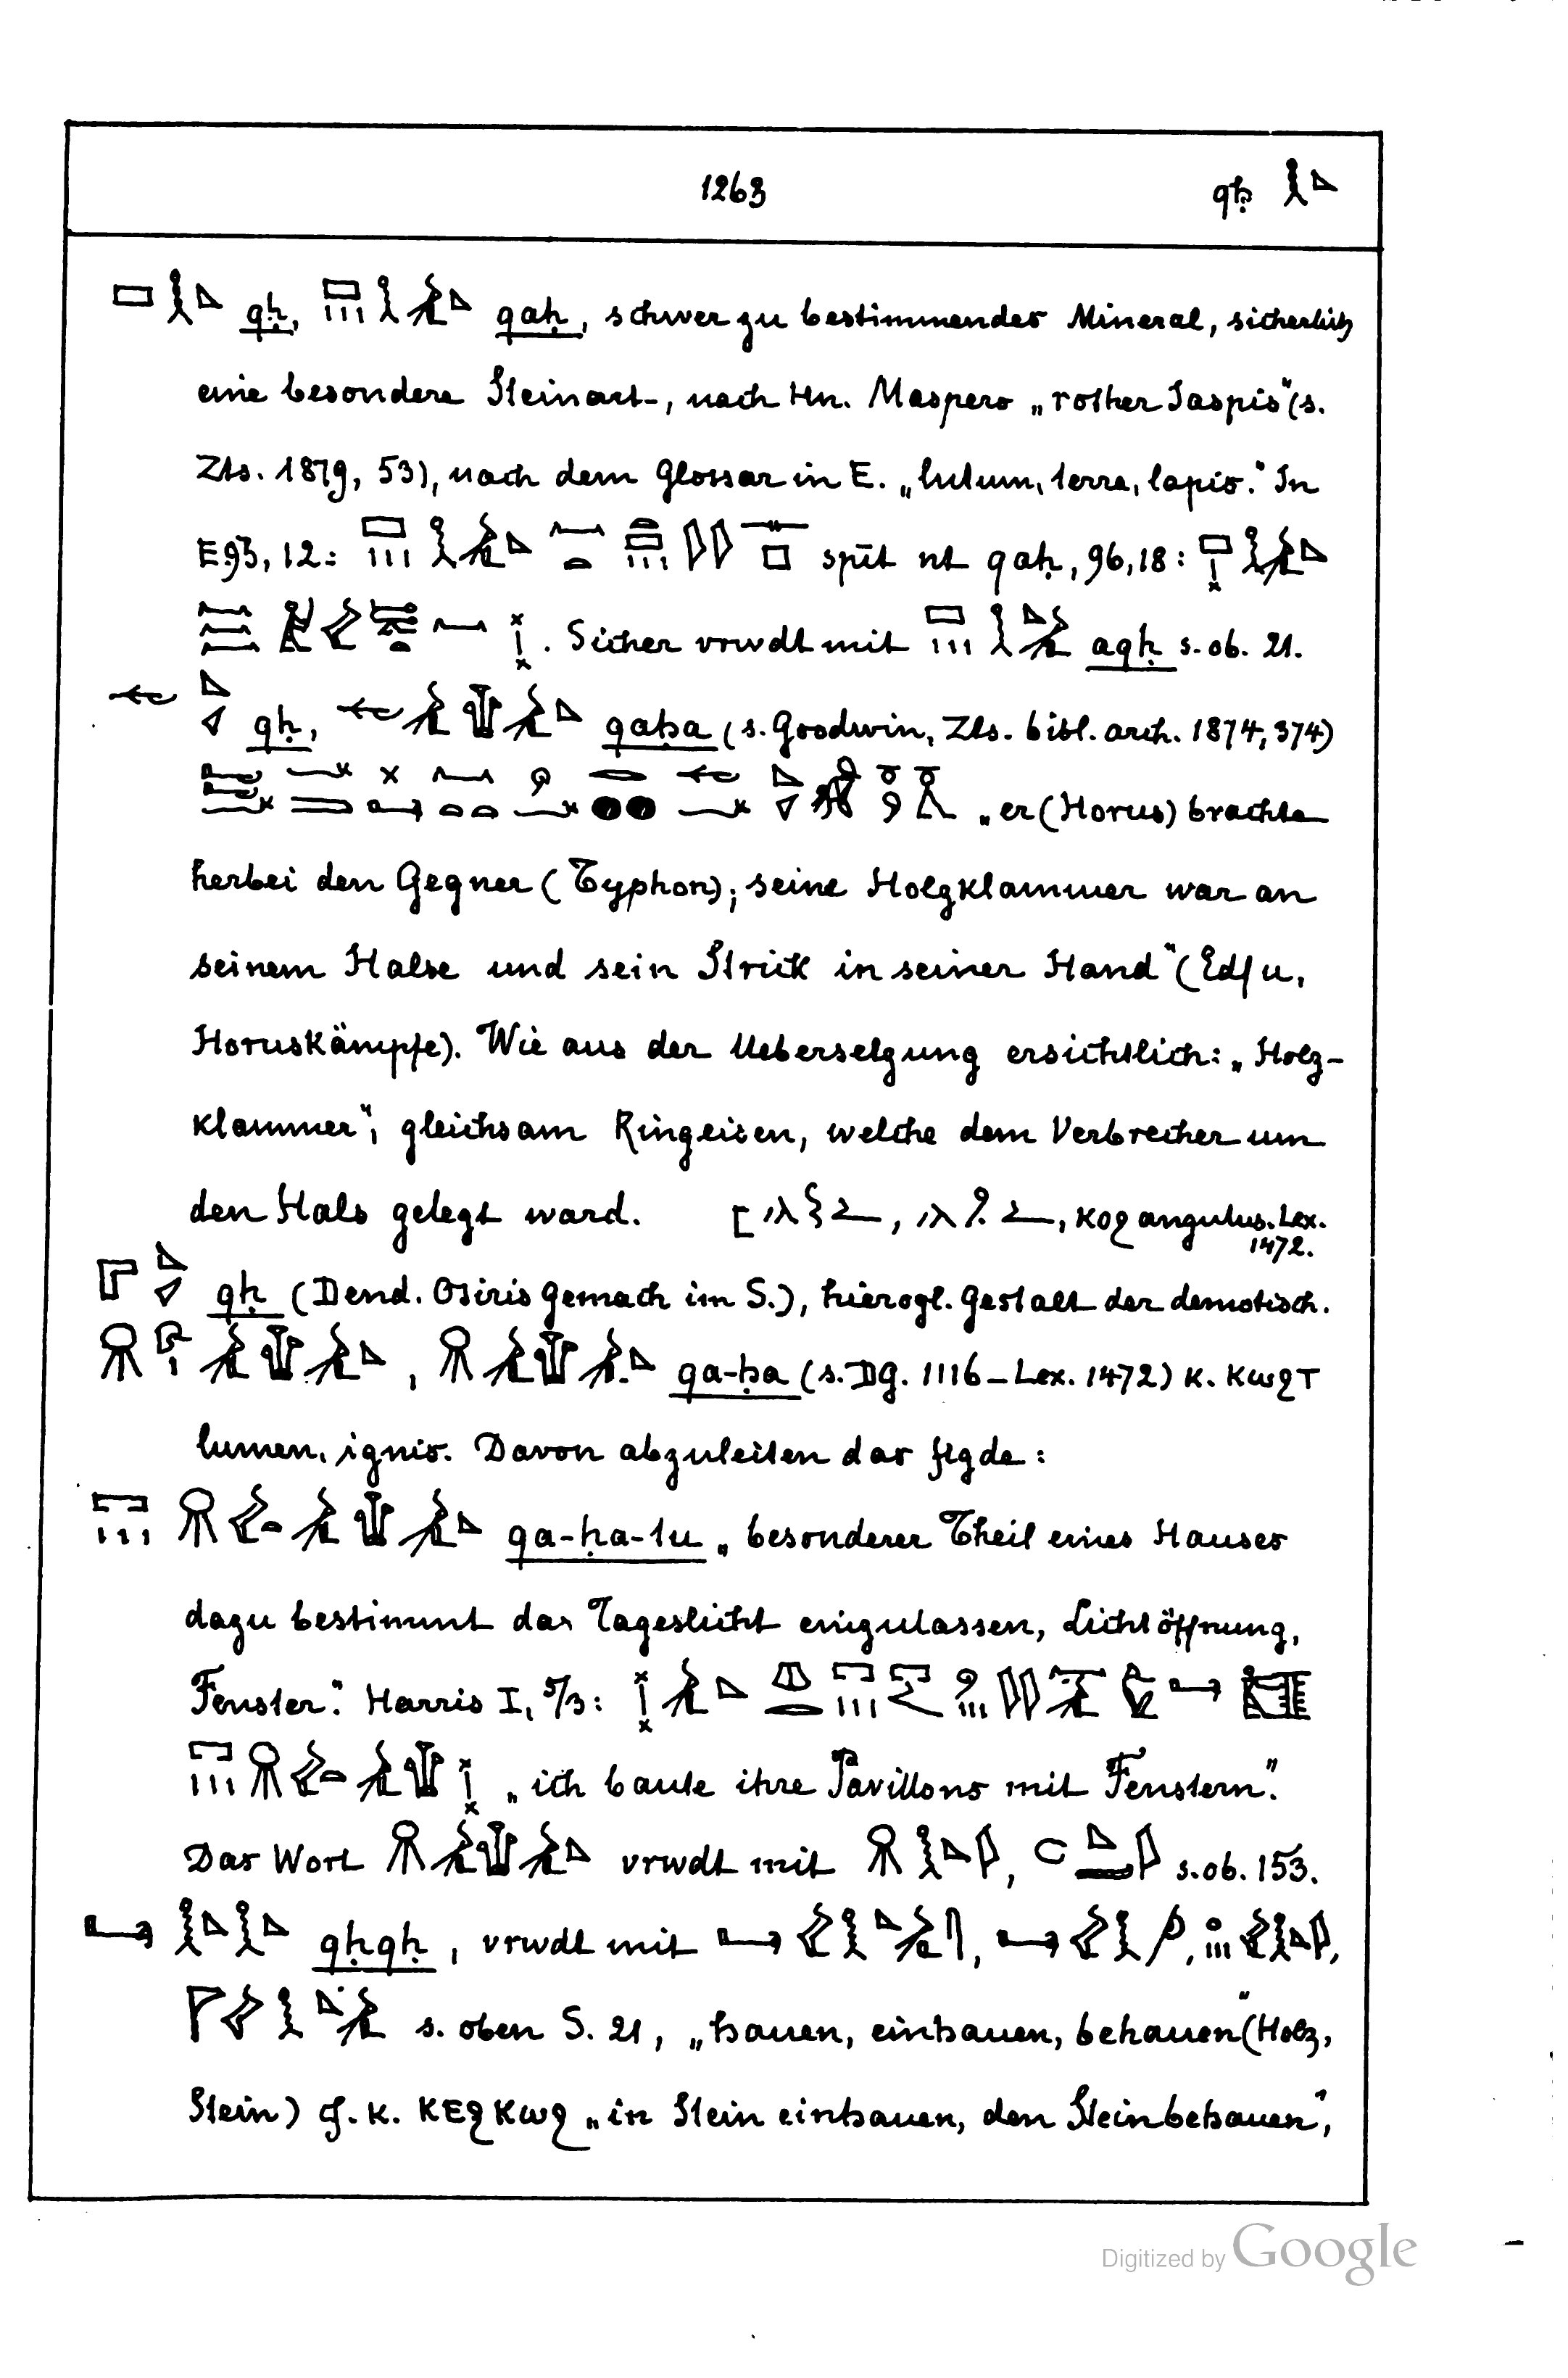 1263 qḥ
qḥ, qaḥ, schwer zu bestimmendes Mineral, sicherlich
eine besondere Steinart, nach Hn. Maspero „rother Jaspis" (s.
Zts. 1879, 53), nach dem Glossar in E. „lutum, terra, lapis." In
E 93, 12: spit nt qaḥ, 96, 18:
. Sicher vrwdt mit aqḥ s. ob. 21.
qḥ, qaḥa (s. Goodwin, Zts. bibl. arch. 1874, 374)
„er (Horus) brachte
herbei den Gegner (Typhon); seine Holzklammer war an
seinem Halse und sein Strick in seiner Hand" (Edfu,
Horuskämpfe). Wie aus der Uebersetzung ersichtlich: „Holz-
klammer", gleichsam Ringeisen, welche dem Verbrecher um
den Hals gelegt ward. [ , , ⲕⲟϩ angulus. Lex.
1472.
qḥ (Dend. Osiris Gemach im S.), hierogl. Gestalt der demotisch.
, qa-ḥa (s. DG. 1116 – Lex. 1472) K. ⲕⲱϩⲧ
lumen, ignis. Davon abzuleiten das flgde:
qa-ḥa-tu „besonderer Theil eines Hauses
dazu bestimmt das Tageslicht einzulassen, Lichtöffnung,
Fenster." Harris I, 5/3:
„ich baute ihre Pavillons mit Fenstern".
Das Wort vrwdt mit , s. ob. 153.
qḥqḥ, vrwdt mit , , ,
s. oben S. 21, „hauen, einhauen, behauen" (Holz,
Stein) cf. K. ⲕⲉϩⲕⲱϩ „in Stein einhauen, den Stein behauen",
Digitized by Google